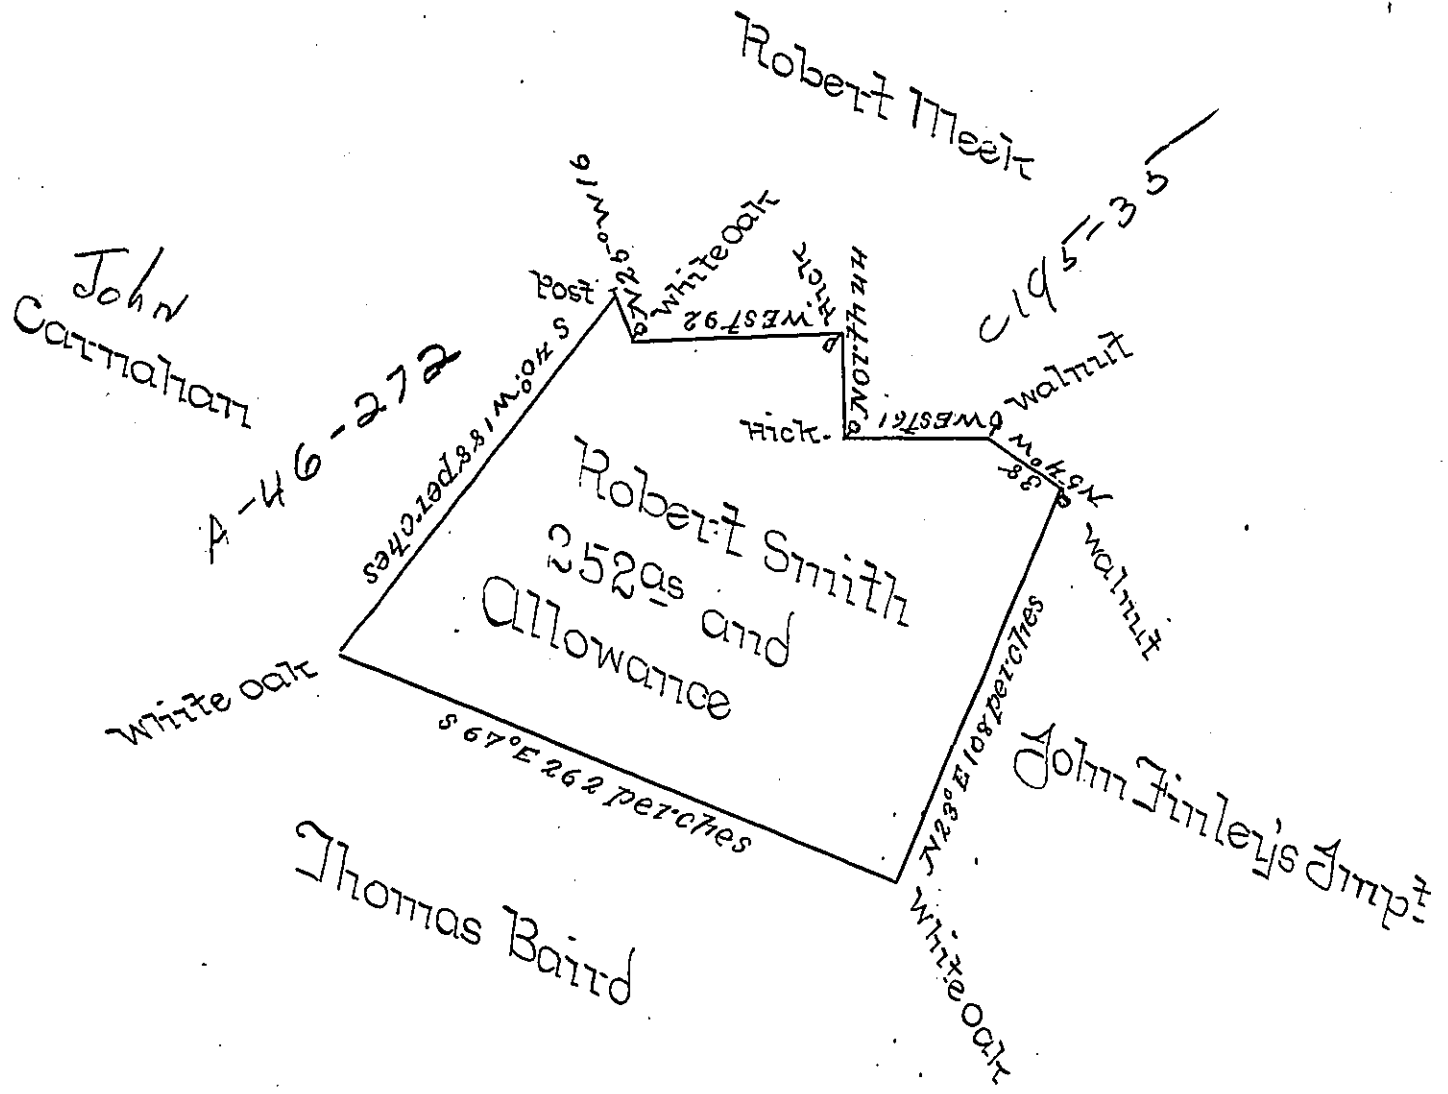 Robert Meek
C195-35
John
Carnahan
A-46-272
Post
N25°W 16
White oak
WEST 92
Hick
North 44
Hick.
WEST 61
walnut
N54°W
38
walnut
S 40°W 188 perches
Robert Smith
252as and
Allowance
White oak
S 67°E 262 perches
N23°E 108 perches
White oak
John Finley's Impt.
Thomas Baird